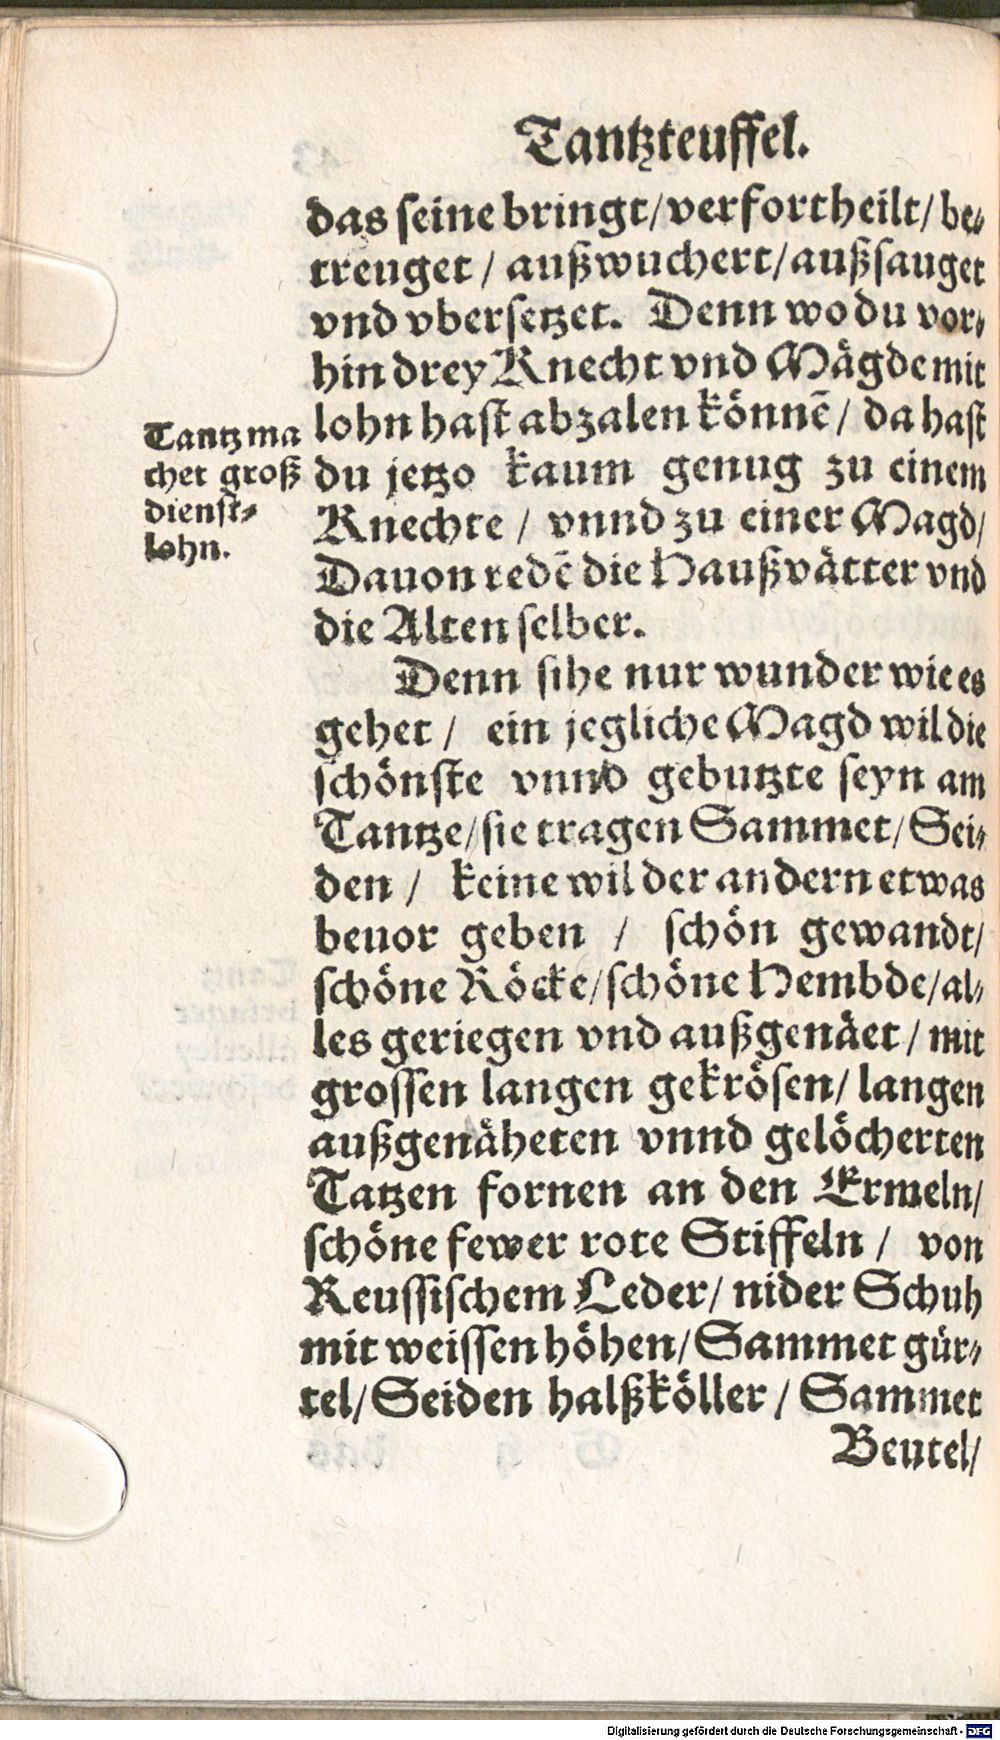 Tantzteuffel.
das seine bringt/verfortheilt/be-
treuget / außwuchert/außsauget
vnd vbersetzet. Denn wo du vor-
hin drey Knecht vnd Mägde mit
lohn hast abzalen könnē/ da hast
du jetzo kaum genug zu einem
Knechte / vnnd zu einer Magd/
Dauon redē die Haußvätter vnd
die Alten selber.
Tantz ma
chet groß
dienst-
lohn.
Denn sihe nur wunder wie es
gehet / ein jegliche Magd wil die
schönste vnnd gebutzte seyn am
Tantze/sie tragen Sammet/Sei-
den / keine wil der andern etwas
beuor geben / schön gewandt/
schöne Röcke/schöne Hembde/al-
les geriegen vnd außgenäet/ mit
grossen langen gekrösen/ langen
außgenäheten vnnd gelöcherten
Tatzen fornen an den Ermeln/
schöne fewer rote Stiffeln / von
Reussischem Leder/ nider Schuh
mit weissen höhen/Sammet gür-
tel/Seiden halßköller / Sammet
Beutel/
Digitalisierung gefördert durch die Deutsche Forschungsgemeinschaft - DFG